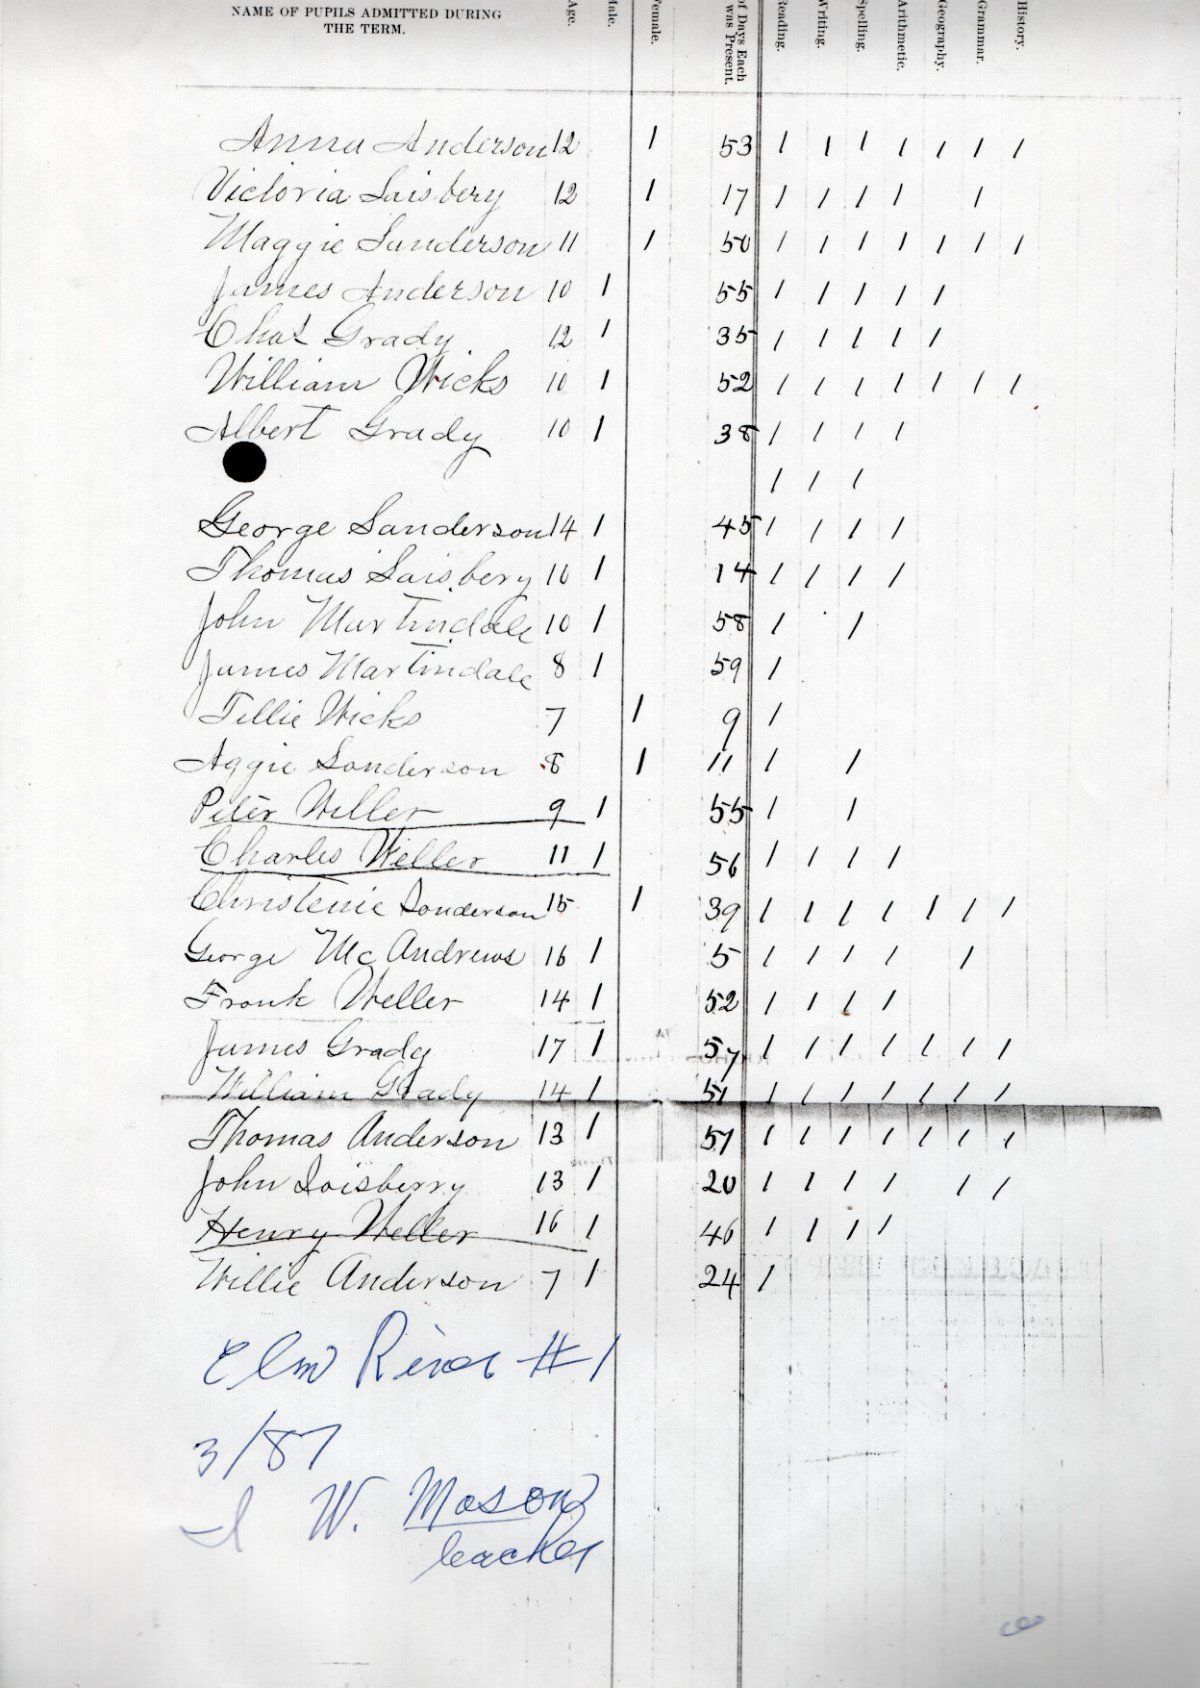 NAME OF PUPILS ADMITTED DURING
THE TERM.
Age.
Male.
Female.
of Days Each
was Present.
Reading.
Writing.
Spelling.
Arithmetic.
Geography.
Grammar.
History.
Anna Anderson 12 1 53 1 1 1 1 1 1 1
Victoria Saisbery 12 1 17 1 1 1 1 1
Maggie Sanderson 11 1 50 1 1 1 1 1 1 1
James Anderson 10 1 55 1 1 1 1 1
Chas Grady 12 1 35 1 1 1 1 1
William Wicks 10 1 52 1 1 1 1 1 1 1
Albert Grady 10 1 38 1 1 1 1
1 1 1
George Sanderson 14 1 45 1 1 1 1
Thomas Saisbery 10 1 14 1 1 1 1
John Martindale 10 1 58 1 1
James Martindale 8 1 59 1
Tillie Wicks 7 1 9 1
Aggie Sanderson 8 1 11 1 1
Peter Weller 9 1 55 1 1
Charles Weller 11 1 56 1 1 1 1
Christenie Sonderson 15 1 39 1 1 1 1 1 1 1
George McAndrews 16 1 5 1 1 1 1 1
Frank Weller 14 1 52 1 1 1 1
James Grady 17 1 57 1 1 1 1 1 1 1
William Grady 14 1 51 1 1 1 1 1 1 1
Thomas Anderson 13 1 57 1 1 1 1 1 1 1
John Soisberry 13 1 20 1 1 1 1 1 1
Henry Weller 16 1 46 1 1 1 1
Willie Anderson 7 1 24 1
Elm River #1
3/87
I W. Mason
teacher